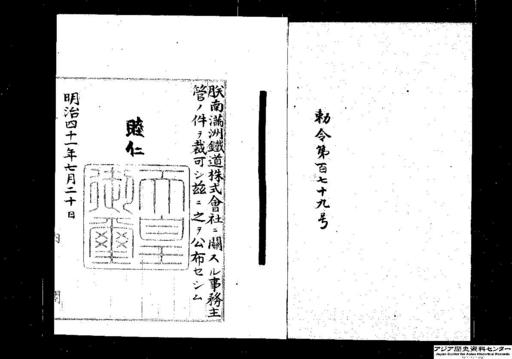 勅令第百七十九号
朕南滿洲鐵道株式會社ニ關スル事務主
管ノ件ヲ裁可シ茲ニ之ヲ公布セシム
睦仁
天皇
御璽
明治四十一年七月二十日
内 閣
アジア歴史資料センター
Japan Center for Asian Historical Records